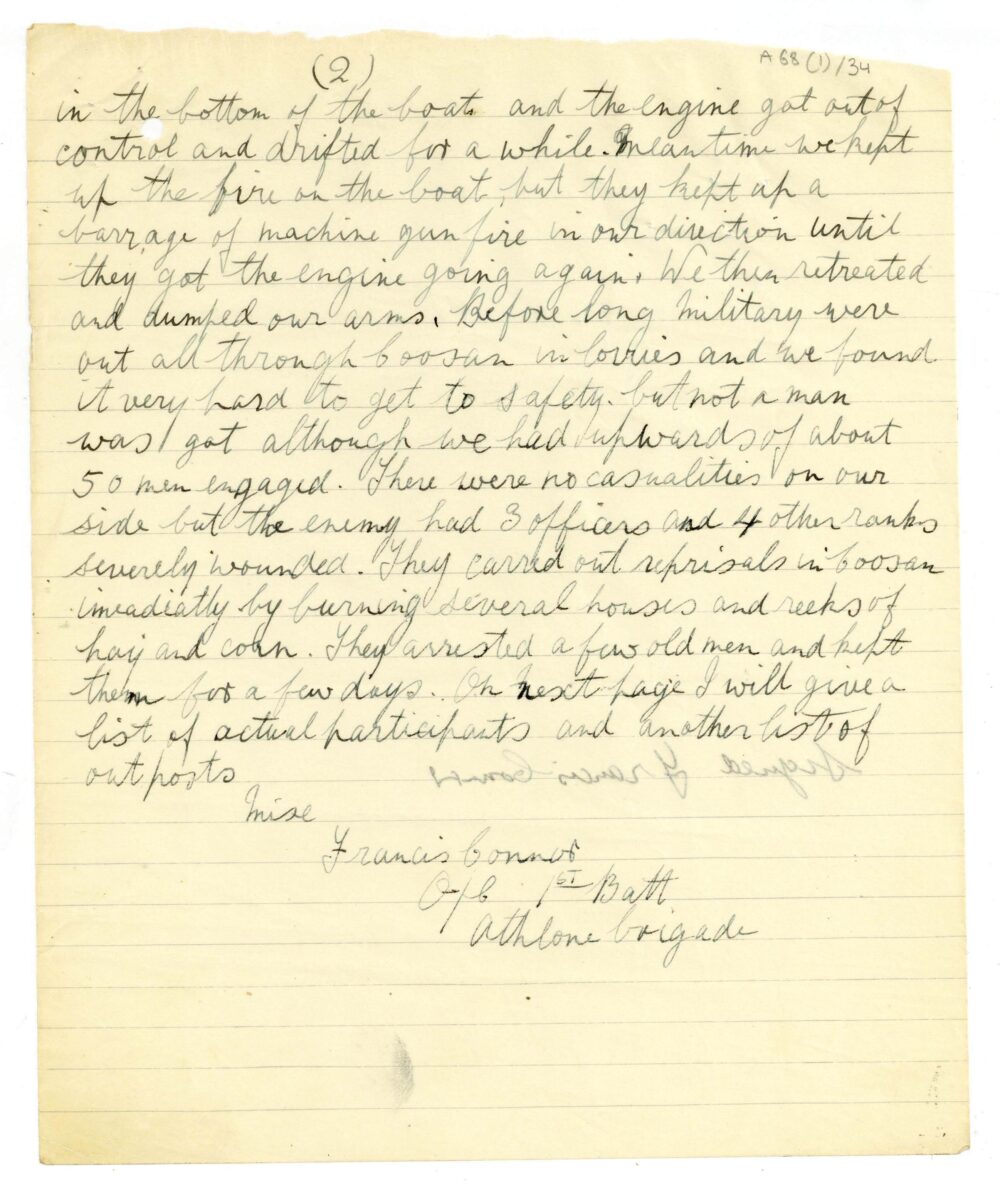 (2)
A 68 (1)/34
in the bottom of the boat. and the engine got out of
control and drifted for a while. Meantime we kept
up the fire on the boat, but they kept up a
barrage of machine gun fire in our direction until
they got the engine going again. We then retreated
and dumped our arms. Before long Military were
out all through Coosan in lorries and we found
it very hard to get to safety. but not a man
was got although we had upwards of about
50 men engaged. There were no casualities on our
side but the enemy had 3 officers and 4 other ranks
severely wounded. They carred out reprisals in Coosan
imeadiatly by burning several houses and reeks of
hay and corn. They arrested a few old men and kept
them for a few days. On next page I will give a
list of actual participants and another list of
outposts
Signed Francis Connor
Mise
Francis Connor
O/C 1ST Batt
Athlone Brigade